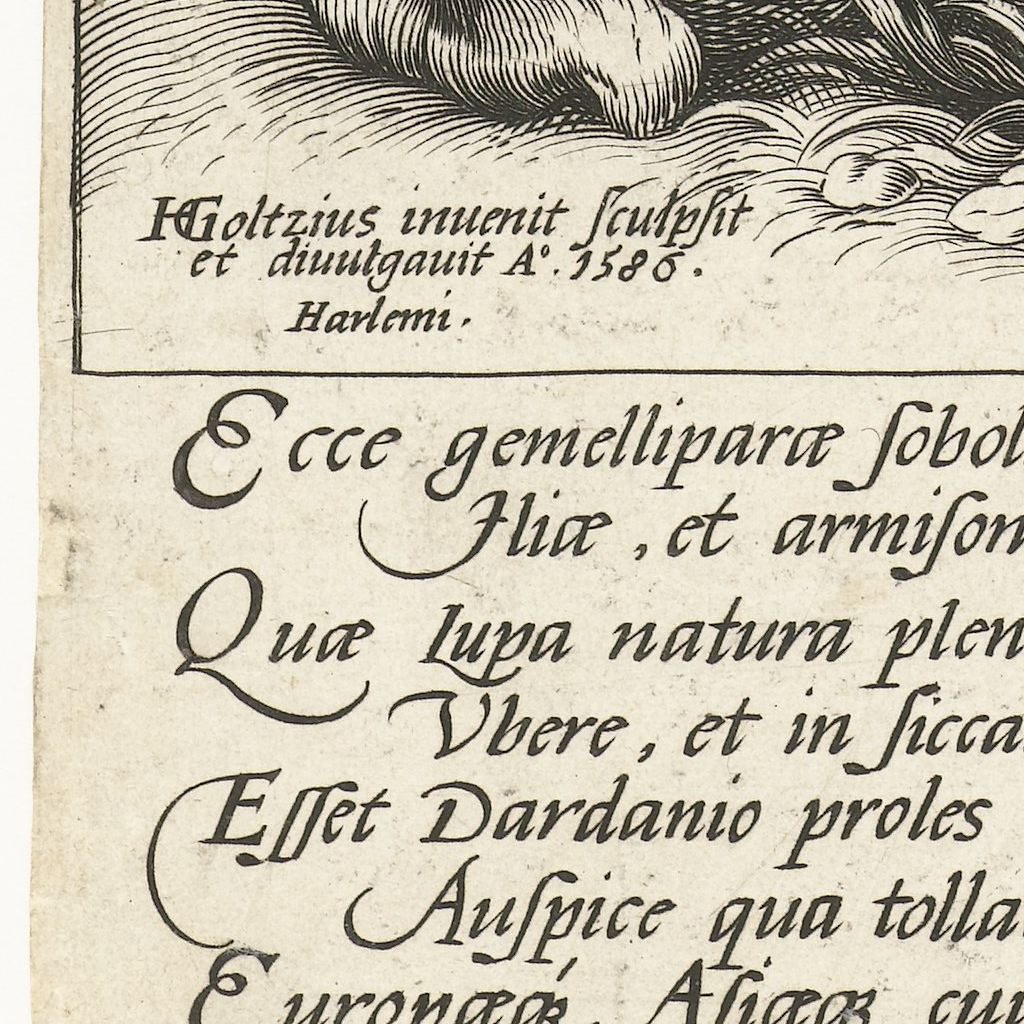 HGoltzius inuenit ſculpſit
et diuulgauit Aº. 1586.
Harlemi.
Ecce gemelliparæ
Iliæ, et
Quæ Lupa natura
Vbere, et in
Eſſet Dardanio proles
Auſpice qua